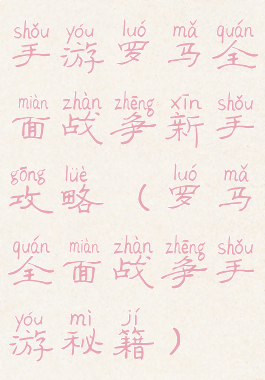 shǒu yóu luó mǎ quán
手游罗马全
miàn zhàn zhēng xīn shǒu
面战争新手
gōng lüè luó mǎ
攻略（罗马
quán miàn zhàn zhēng shǒu
全面战争手
yóu mì jí
游秘籍）